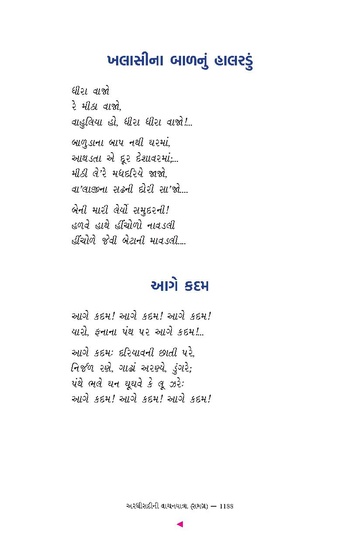 ખલાસીના બાળનું હાલરડું
ધીરા વાજો
રે મીઠા વાજો,
વાહુલિયા હો, ધીરા ધીરા વાજો!...
બાળુડાના બાપ નથી ઘરમાં,
આથડતા એ દૂર દેશાવરમાં;...
મીઠી લે'રે મધદરિયે જાજો,
વા'લાજીના સઢની દોરી સા'જો....
બેની મારી લેર્યો સમુદરની!
હળવે હાથે હીંચોળો નાવડલી
હીંચોળે જેવી બેટાની માવડલી....
આગે કદમ
આગે કદમ! આગે કદમ! આગે કદમ!
યારો, ફનાના પંથ પર આગે કદમ!...
આગે કદમઃ દરિયાવની છાતી પરે,
નિર્જળ રણે, ગાઢાં અરણ્યે, ડુંગરે;
પંથે ભલે ઘન ઘૂઘવે કે લૂ ઝરેઃ
આગે કદમ! આગે કદમ! આગે કદમ!
અરધીસદીની વાચનયાત્રા (સમગ્ર) — 1188